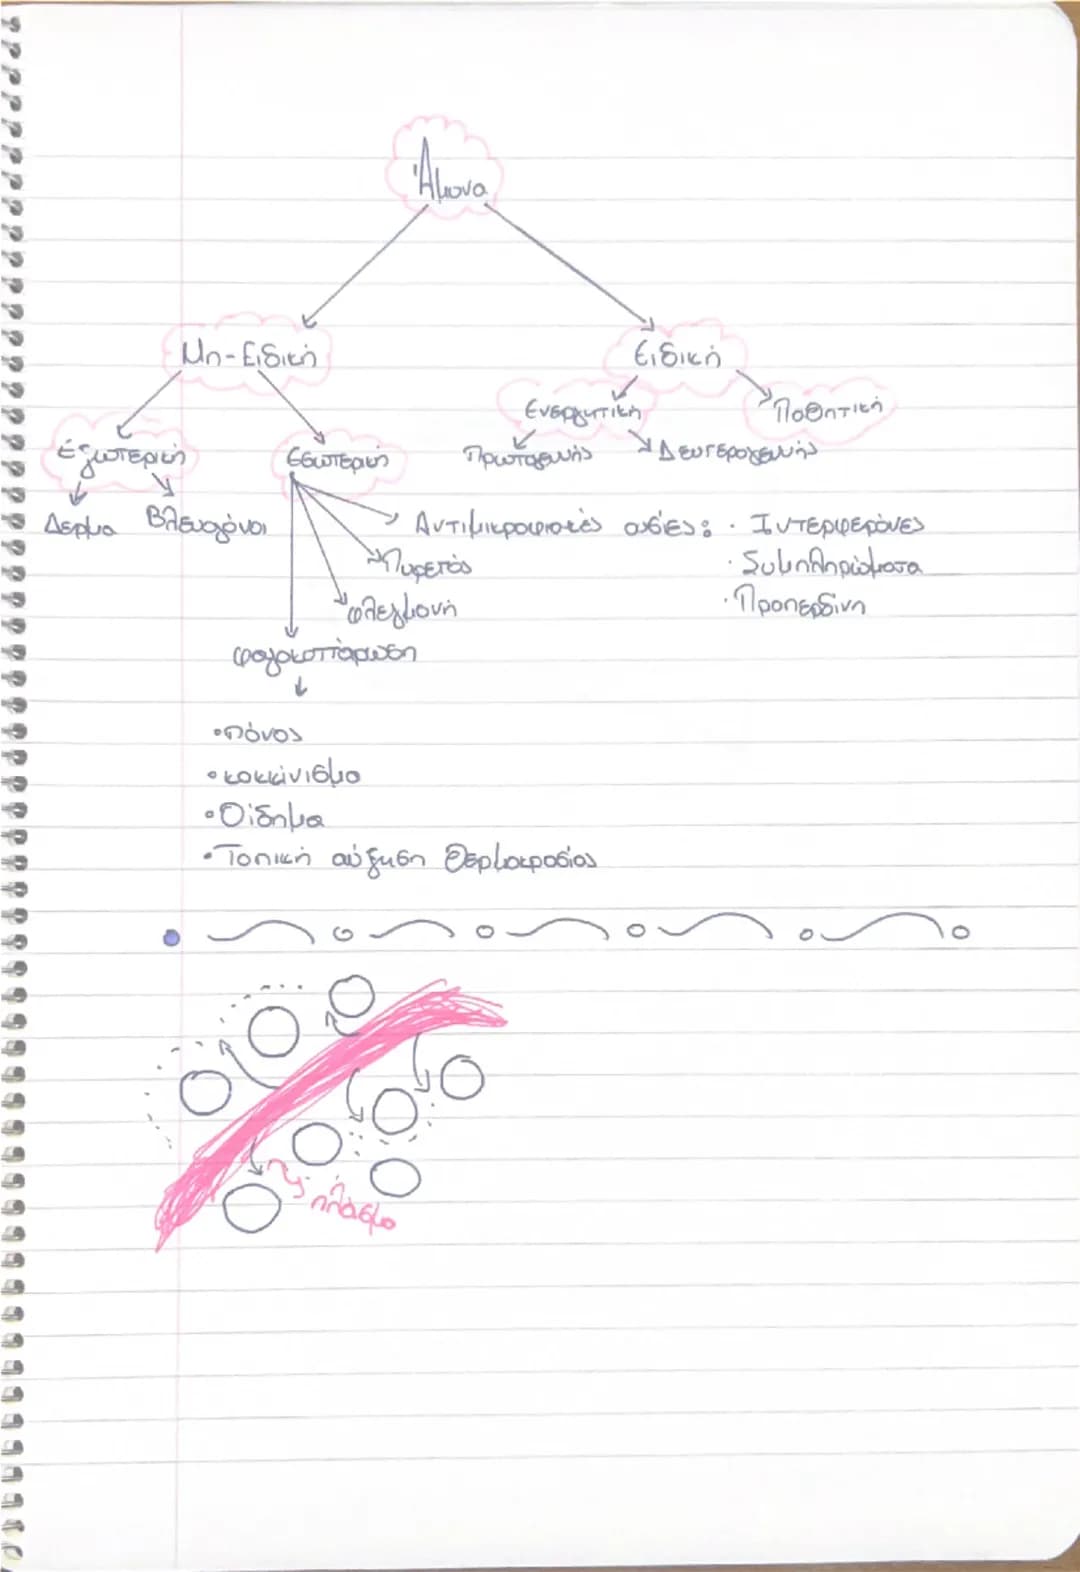 Άμυνα
Μη-Ειδική Ειδική
Ενεργητική Παθητική
Εξωτερική Εσωτερική Πρωτογενής Δευτερογενής
Δερμα Βλεννογόνοι Αντιμικροβιακές ουσίες: · Ιντερφερόνες
Πυρετός · Συμπληρώματα
φλεγμονή · Προπερδίνη
φαγοκυττάρωση
• πόνος
• κοκκίνισμα
• Οίδημα
• Τοπική αύξηση θερμοκρασίας
πλάσμα